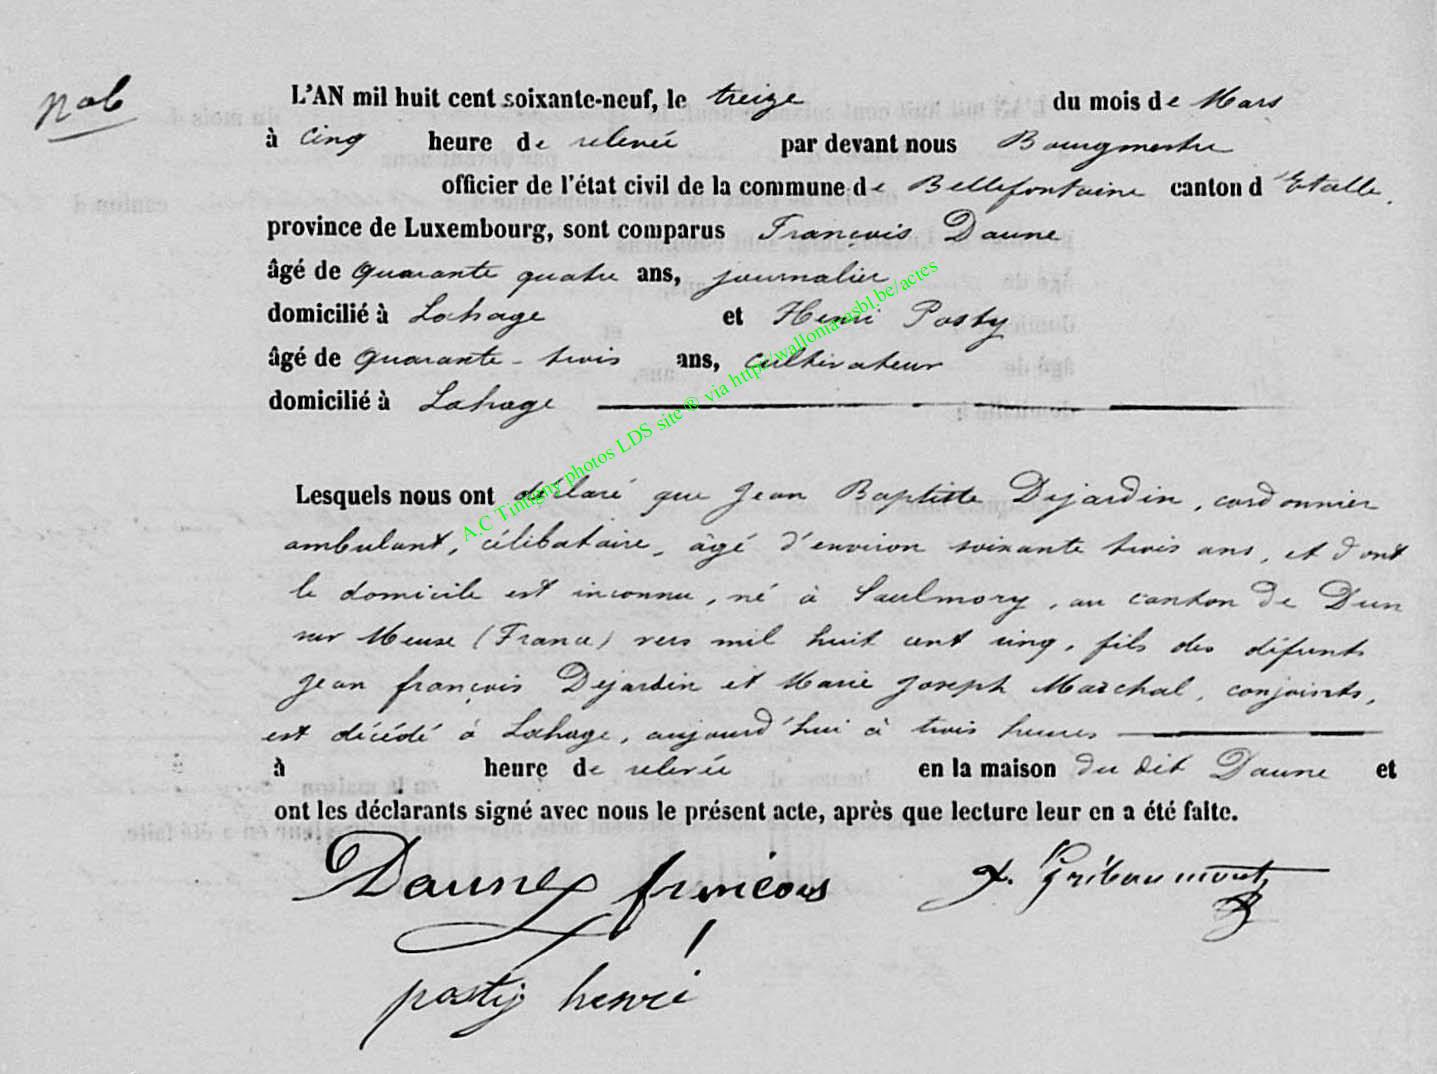 nob
L'AN mil huit cent soixante-neuf, le treize du mois de Mars
à cinq heure de relevée par devant nous Bourgmestre
officier de l'état civil de la commune de Bellefontaine canton d'Etalle.
province de Luxembourg, sont comparus François Daune
âgé de quarante quatre ans, journalier
domicilié à Lahage et Henri Posty
âgé de quarante-trois ans, cultivateur
domicilié à Lahage
Lesquels nous ont déclaré que Jean Baptiste Dejardin, cordonnier
ambulant, célibataire, âgé d'environ soixante trois ans, et dont
le domicile est inconnu, né à Saulmory, au canton de Dun
sur Meuse (France) vers mil huit cent cinq, fils des défunts
Jean françois Dejardin et Marie Joseph Marchal, conjoints,
est décédé à Lahage, aujourd'hui à trois heures
à heure de relevée en la maison du dit Daune et
ont les déclarants signé avec nous le présent acte, après que lecture leur en a été faite.
Daune françois
posty henri
A.C Tintigny photos LDS site ® via http://wallonia-asbl.be/actes